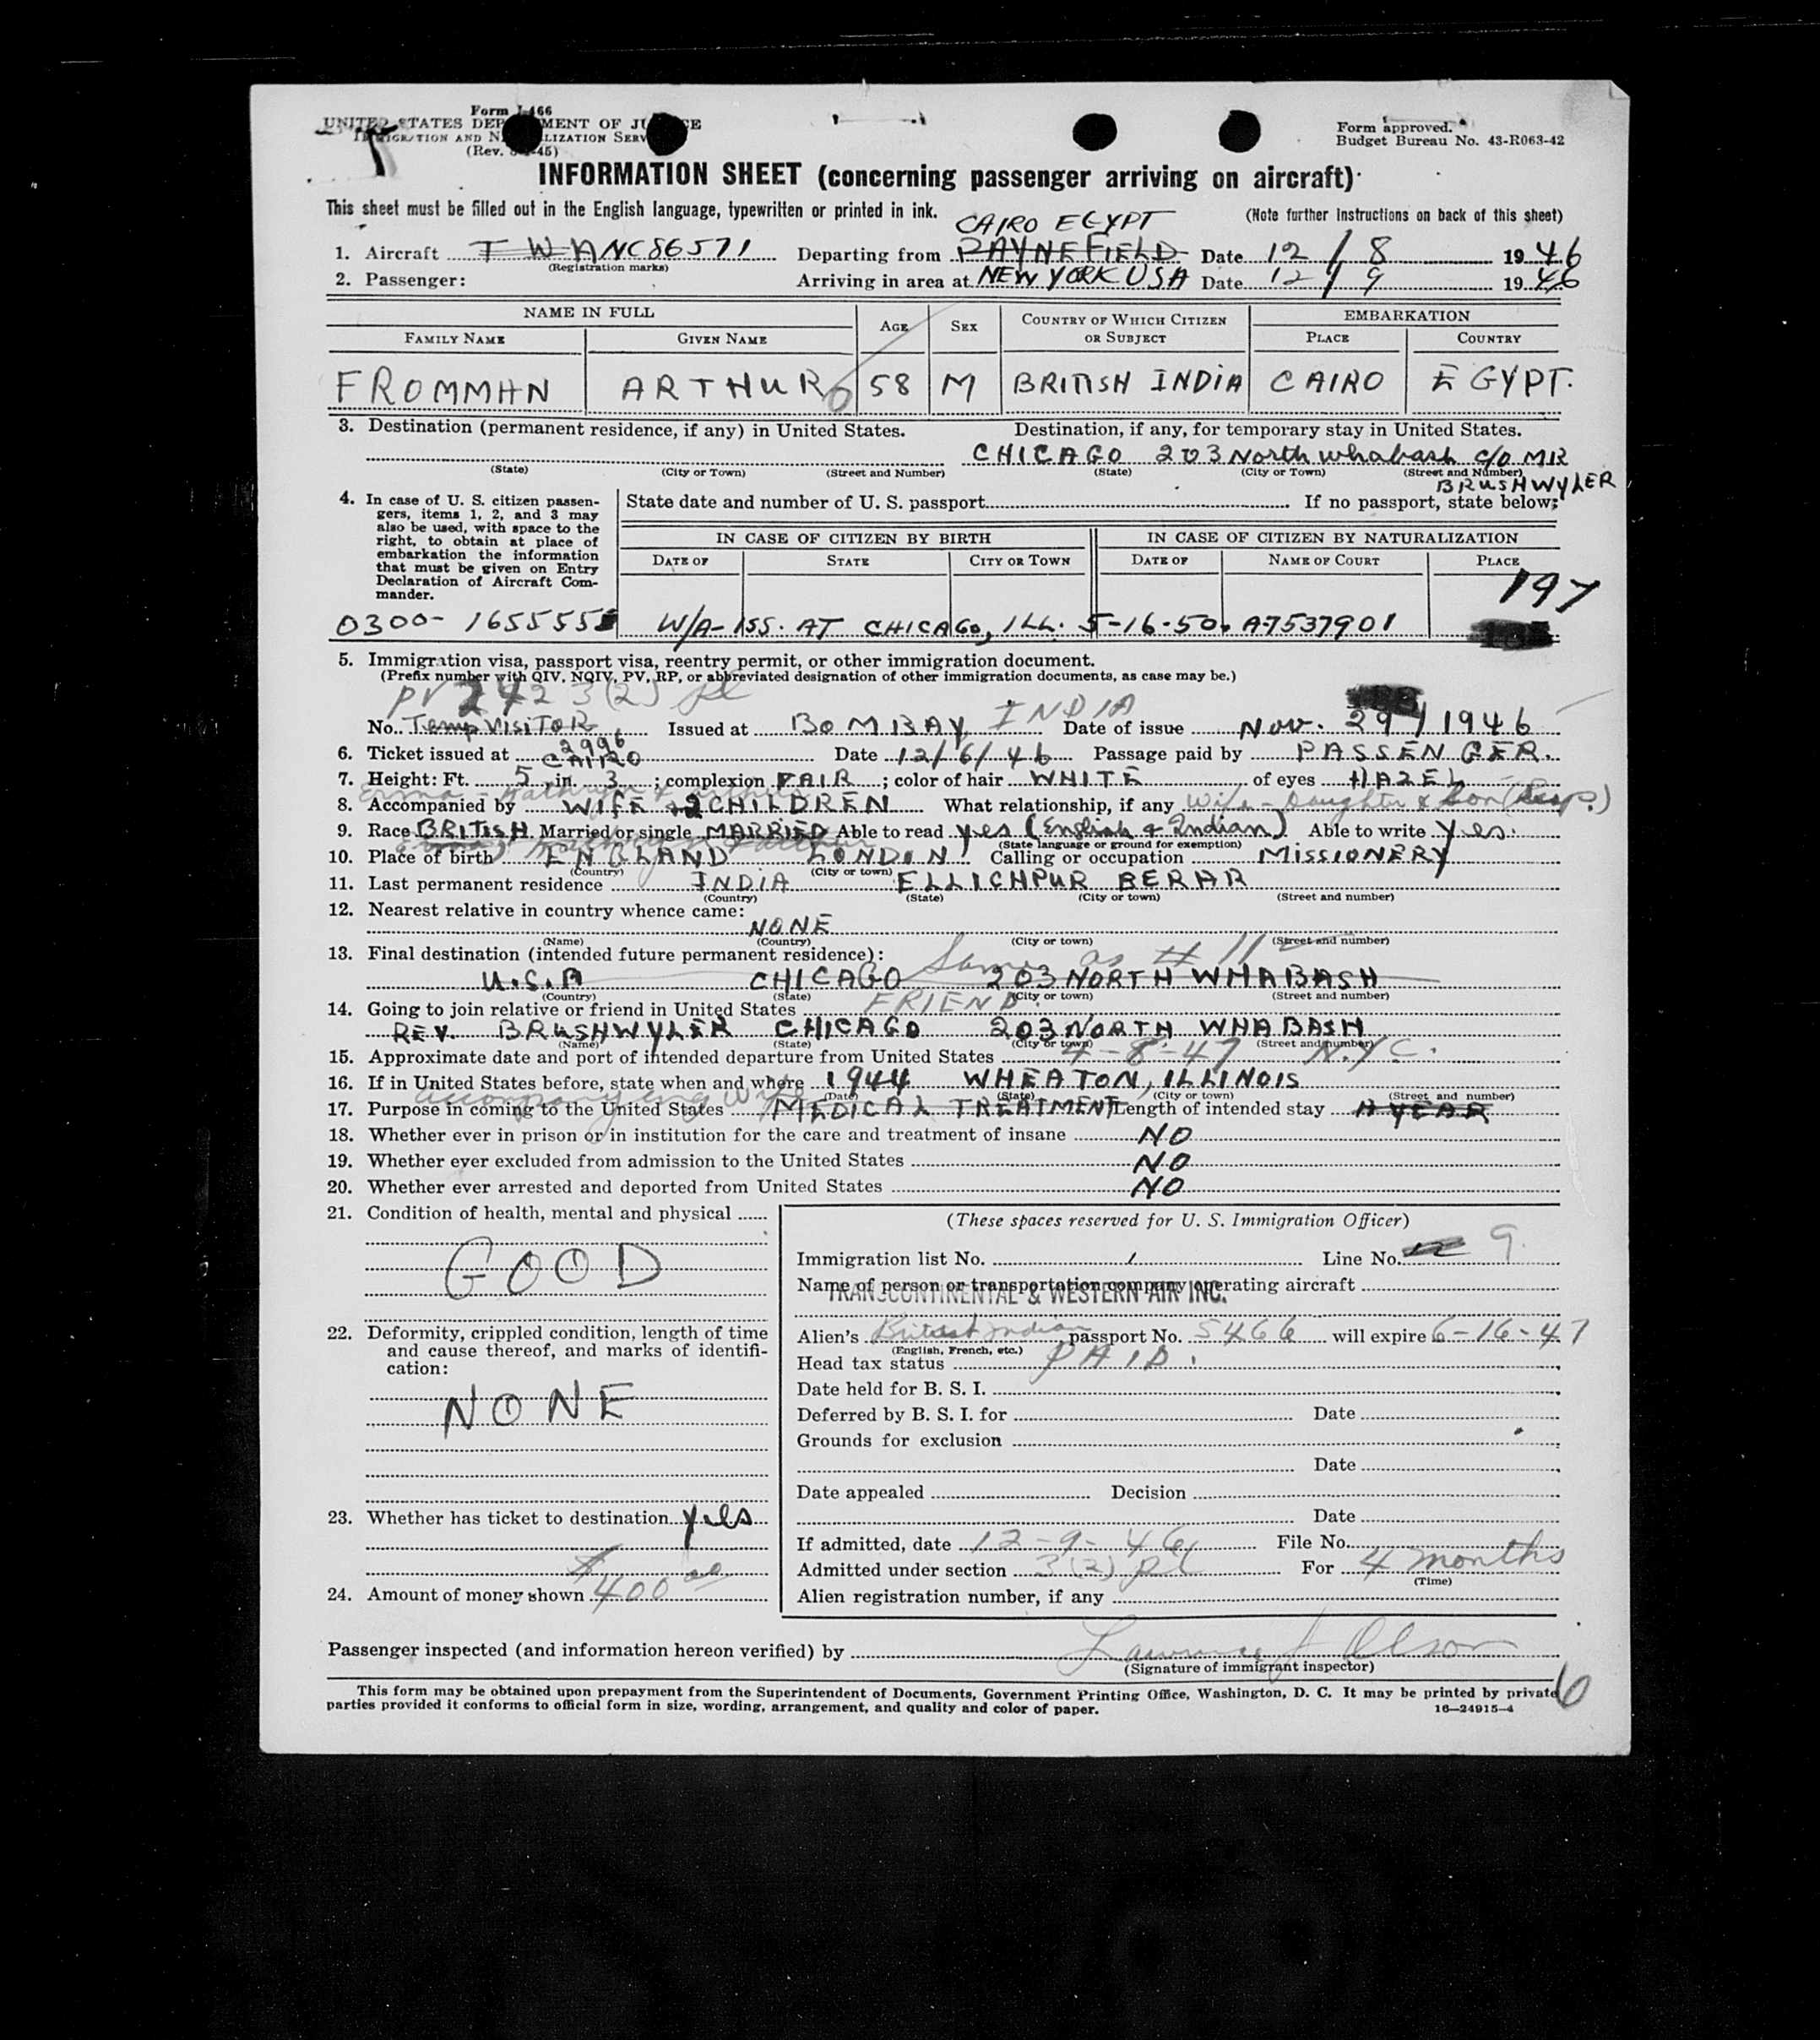 Form I-466
UNITED STATES DEPARTMENT OF JUSTICE
IMMIGRATION AND NATURALIZATION SERVICE
(Rev. -45)
Form approved.
Budget Bureau No. 43-R063-42
INFORMATION SHEET (concerning passenger arriving on aircraft)
This sheet must be filled out in the English language, typewritten or printed in ink.
(Note further instructions on back of this sheet)
CAIRO EGYPT
1. Aircraft T W A NC86571 Departing from PAYNE FIELD Date 12/8 1946
(Registration marks)
2. Passenger: Arriving in area at NEW YORK USA Date 12/9 1946
NAME IN FULL AGE SEX COUNTRY OF WHICH CITIZEN OR SUBJECT EMBARKATION
FAMILY NAME GIVEN NAME PLACE COUNTRY
FROMMAN ARTHUR 58 M BRITISH INDIA CAIRO EGYPT.
3. Destination (permanent residence, if any) in United States. Destination, if any, for temporary stay in United States.
CHICAGO 203 North Whabash C/O MR
(State) (City or Town) (Street and Number) (State) (City or Town) (Street and Number)
BRUSHWYLER
4. In case of U. S. citizen passengers, items 1, 2, and 3 may also be used, with space to the right, to obtain at place of embarkation the information that must be given on Entry Declaration of Aircraft Commander.
State date and number of U. S. passport If no passport, state below:
IN CASE OF CITIZEN BY BIRTH IN CASE OF CITIZEN BY NATURALIZATION
DATE OF STATE CITY OR TOWN DATE OF NAME OF COURT PLACE
197
0300-165555 W/A-ISS. AT CHICAGO, ILL. 5-16-50. A7537901
5. Immigration visa, passport visa, reentry permit, or other immigration document.
(Prefix number with QIV, NQIV, PV, RP, or abbreviated designation of other immigration documents, as case may be.)
PV 242 3(2)
No. Temp VISITOR Issued at BOMBAY INDIA Date of issue Nov. 29/1946
2996
6. Ticket issued at CAIRO Date 12/6/46 Passage paid by PASSENGER.
7. Height: Ft. 5, in. 3; complexion FAIR; color of hair WHITE of eyes HAZEL
8. Accompanied by WIFE & 2 CHILDREN What relationship, if any Wife - Daughter & Son (Resp.)
9. Race BRITISH Married or single MARRIED Able to read yes (English & Indian) Able to write yes.
(State language or ground for exemption)
10. Place of birth ENGLAND LONDON Calling or occupation MISSIONERY
(Country) (City or town)
11. Last permanent residence INDIA ELLICHPUR BERAR
(Country) (State) (City or town) (Street and number)
12. Nearest relative in country whence came:
NONE
(Name) (Country) (City or town) (Street and number)
13. Final destination (intended future permanent residence): Same as # 11
U.S.A CHICAGO 203 NORTH WHABASH
(Country) (State) (City or town) (Street and number)
14. Going to join relative or friend in United States FRIEND
REV. BRUSHWYLER CHICAGO 203 NORTH WHABASH
(Name) (State) (City or town) (Street and number)
15. Approximate date and port of intended departure from United States 4-8-47 N.Y.C.
16. If in United States before, state when and where 1944 WHEATON, ILLINOIS
(Date) (State) (City or town) (Street and number)
accompanying wife
17. Purpose in coming to the United States MEDICAL TREATMENT Length of intended stay A YEAR
18. Whether ever in prison or in institution for the care and treatment of insane NO
19. Whether ever excluded from admission to the United States NO
20. Whether ever arrested and deported from United States NO
21. Condition of health, mental and physical
GOOD
22. Deformity, crippled condition, length of time and cause thereof, and marks of identification:
NONE
23. Whether has ticket to destination yes
24. Amount of money shown $400.00
(These spaces reserved for U. S. Immigration Officer)
Immigration list No. 1 Line No. 9
Name of person or transportation company operating aircraft
TRANSCONTINENTAL & WESTERN AIR INC.
Alien's British Indian passport No. 5466 will expire 6-16-47
(English, French, etc.)
Head tax status PAID.
Date held for B. S. I.
Deferred by B. S. I. for Date
Grounds for exclusion
Date
Date appealed Decision
Date
If admitted, date 12-9-46 File No.
Admitted under section 3(2) For 4 months
(Time)
Alien registration number, if any
Passenger inspected (and information hereon verified) by Lawrence J Olson
(Signature of immigrant inspector)
This form may be obtained upon prepayment from the Superintendent of Documents, Government Printing Office, Washington, D. C. It may be printed by private
parties provided it conforms to official form in size, wording, arrangement, and quality and color of paper.
16—24915-4